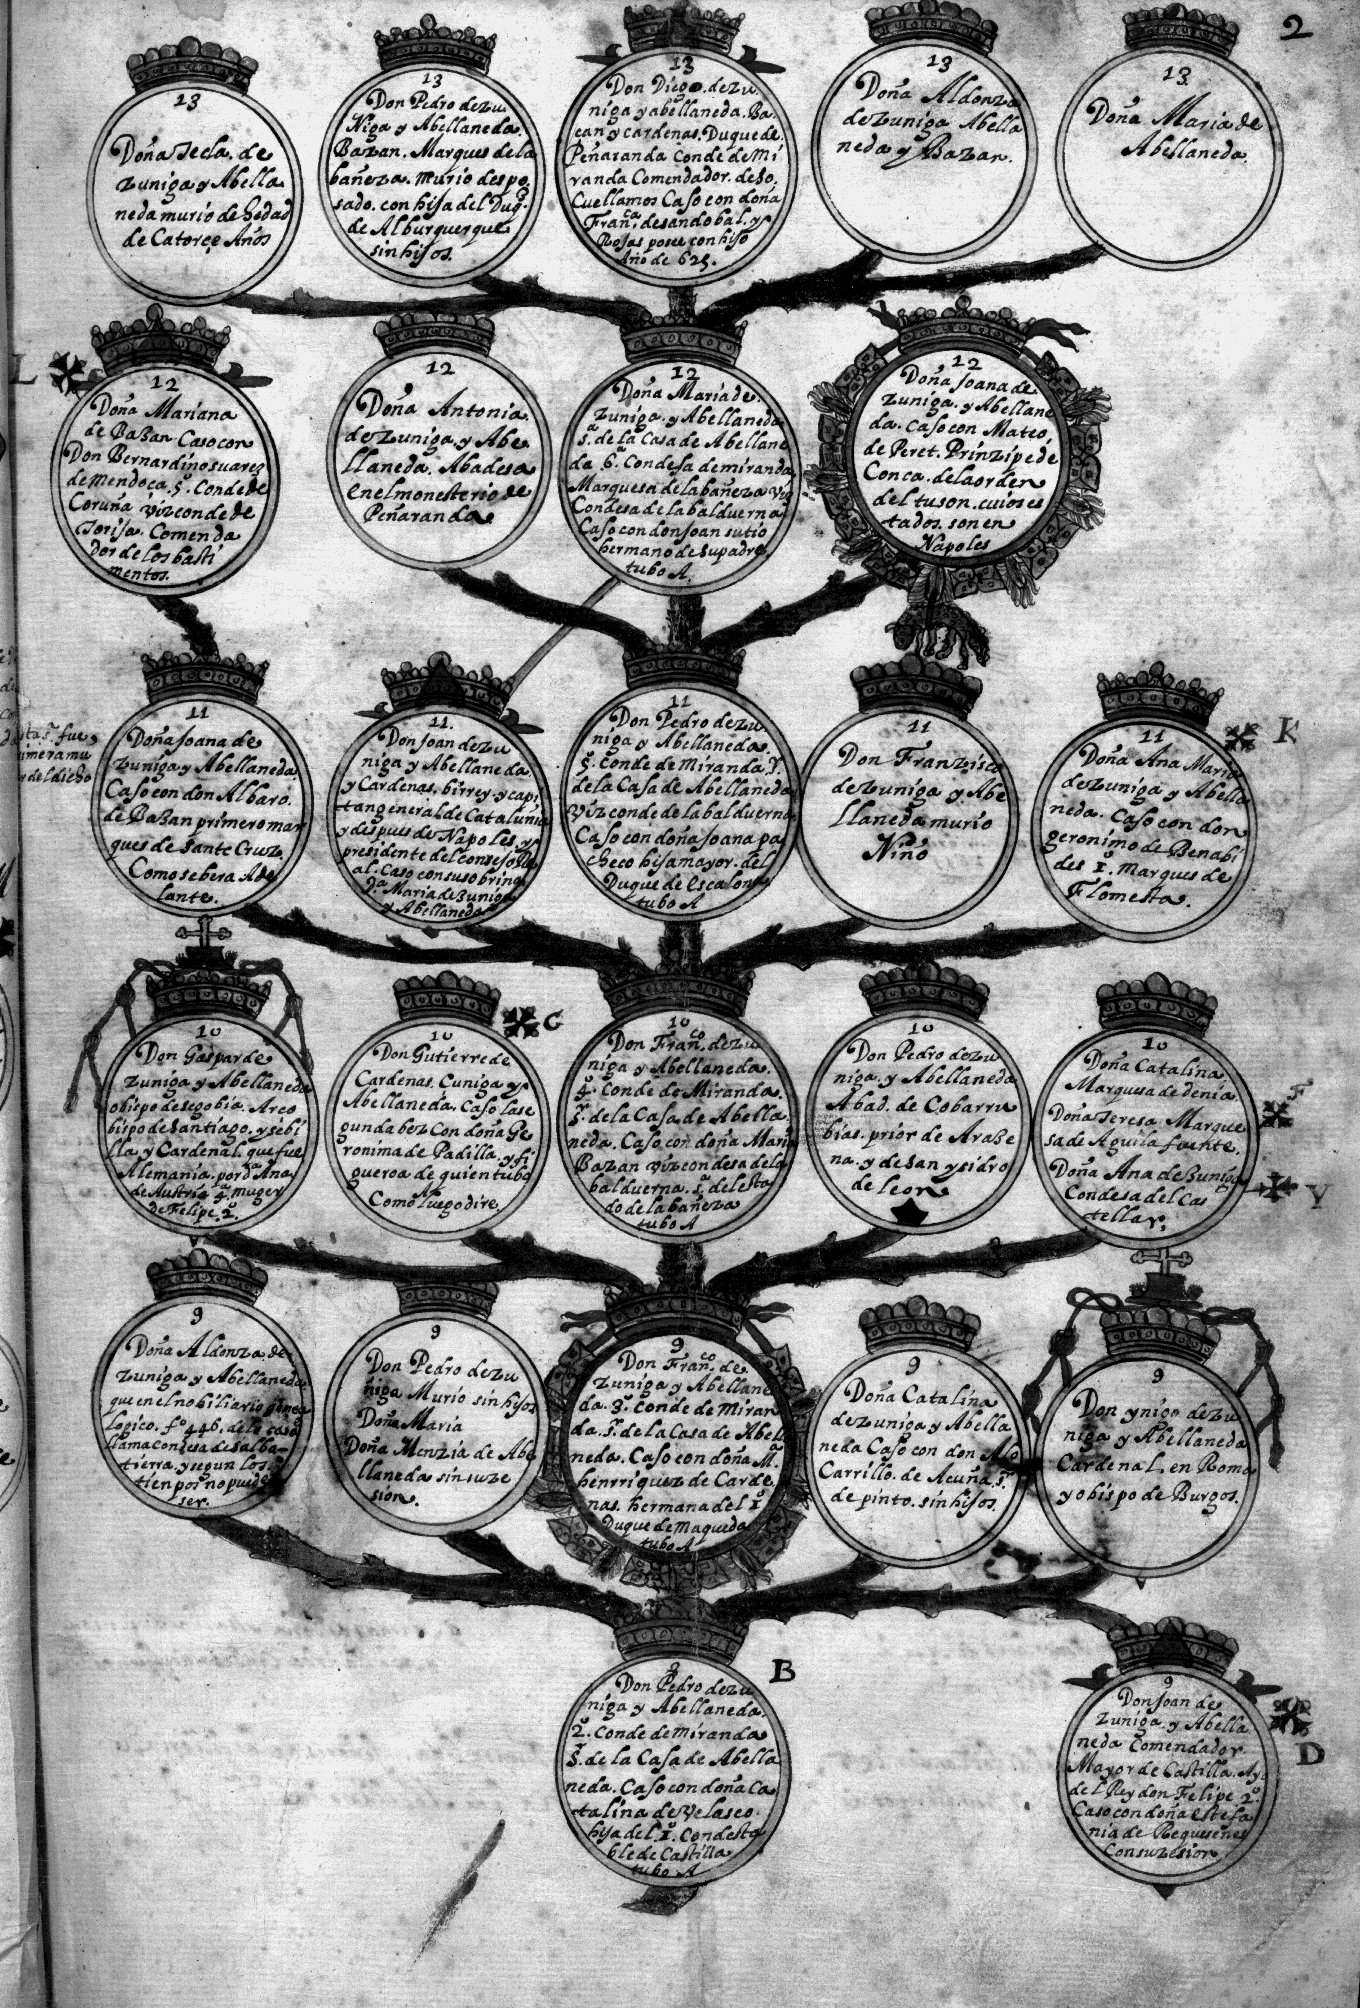 2
13
Doña Tecla. de
zuniga y Abella
neda murio de hedad
de Catorçe Años
13
Don Pedro de zu
Niga y Abellaneda.
Bazan. Marques de la
bañeza. murio despo
sado. con hija del Duq.
de Alburquerque
sin hijos.
13
Don Diego. de zu
niga y abellaneda. Ba
can y cardenas. Duque de
Peñaranda Conde de Mi
randa Comendador. de So
Cuellamos Caso con doña
Fran.ca de sandobal. y
Rojas posee con hijo
Año de 625.
13
Doña Aldonza
de zuniga Abella
neda y Bazan.
13
Doña Maria de
Abellaneda.
L
12
Doña Mariana
de Bazan Caso con
Don Bernardino suarez
de mendoca. 5º. Conde de
Coruña vizconde de
Torija. Comenda
dor de los basti
mentos.
12
Doña Antonia.
de zuniga y Abe
llaneda. Abadesa
en el monesterio de
Peñaranda
12
Doña Maria de.
zuniga. y Abellaneda
sª. de la Casa de Abellane
da 6ª. Condesa de miranda
Marquesa de la bañeza viz
Condesa de la balduerna
Caso con don Joan su tio
hermano de su padre.
tubo A.
12
Doña Joana de
zuniga. y Abellane
da. Caso con Mateo.
de Peret. Prinzipe de
Conca. de la orden
del tuson. cuios es
tados. son en
Napoles
11
Doña Joana de
zuniga y Abellaneda
Caso con don Albaro.
de Bazan primero mar
ques de Sante Cruz.
Como se bera Ade
lante.
11.
Don Joan de zu
niga y Abellaneda
y Cardenas. birrey y capi
tan general de Cataluña
y despues de Napoles. y
presidente del consejo Re
al. Caso con su sobrina
Dª. Maria de zuniga
y Abellaneda
11
Don Pedro de zu
niga y Abellaneda.
5º. Conde de Miranda sr.
de la Casa de Abellaneda
vizconde de la balduerna
Caso con doña Joana pa
checo hija mayor. del
Duque de escalona
tubo A
11
Don Franzisco
de zuniga y Abe
llaneda murio
Niño
K
11
Doña Ana Maria
de zuniga y Abella
neda. Caso con don
geronimo de Benabi
des 1º. Marques de
Flomesta.
10
Don Gaspar de
zuniga y Abellaneda
obispo de segobia. Arco
bispo de Santiago. y sebi
lla. y Cardenal. que fue
Alemania. por dª Ana
de Austria 4ª. muger
de Felipe. 2º.
G
10
Don Gutierre de
Cardenas. Cuniga y
Abellaneda. Caso la se
gunda bez Con doña Ge
ronima de Padilla. y fi
gueroa de quien tubo
Como luego dire.
10
Don Fran.co de zu
niga y Abellaneda.
4º. Conde de Miranda.
sr. de la Casa de Abella
neda. Caso con doña Maria
Bazan vizcondesa de la
balduerna. sª. del esta
do de la bañeza
tubo A
10
Don Pedro de zu
niga. y Abellaneda
Abad. de Cobarru
bias. prior de Araze
na. y de San ysidro
de leon
Y
10
Doña Catalina
Marquesa de denia.
Doña Teresa. Marque
sa de Aguila fuente.
Doña Ana de zuniga
Condesa del Cas
tellar.
9
Doña Aldonza. de
zuniga y Abellaneda.
que en el nobiliario genea
logico. fº 446. de la casa
llama condesa de salba-
tierra. y segun los.
tienpos no puede
ser.
9
Don Pedro de zu
ñiga Murio sin hijos
Doña Maria
Doña Menzia de Abe
llaneda sin suze
sion.
9
Don Fran.co de
zuniga y Abellane
da. 3º. Conde de Miran
da. sr. de la Casa de Abell
neda. Caso con doña Mª.
henrriquez de Carde
nas. hermana del 1º
Duque de Maqueda
tubo A
9
Doña Catalina
de zuniga y Abella
neda Caso con don Alº
Carrillo. de Acuña. sr.
de pinto. sin hijos.
9
Don ynigo de zu
niga y Abellaneda
Cardenal. en Roma
y obispo de Burgos.
B
Don Pedro de zu
niga y Abellaneda.
2º. Conde de miranda
sr. de la Casa de Abella
neda. Caso con doña Ca
talina de velasco.
hija del. 1º. Condesta
ble de Castilla
tubo A
D
9
Don Joan de
zuniga. y Abella
neda Comendador
Mayor de Castilla. Ayo
del Rey don Felipe 2º.
Caso con doña estefa
nia de Requesenes
Con suzesion